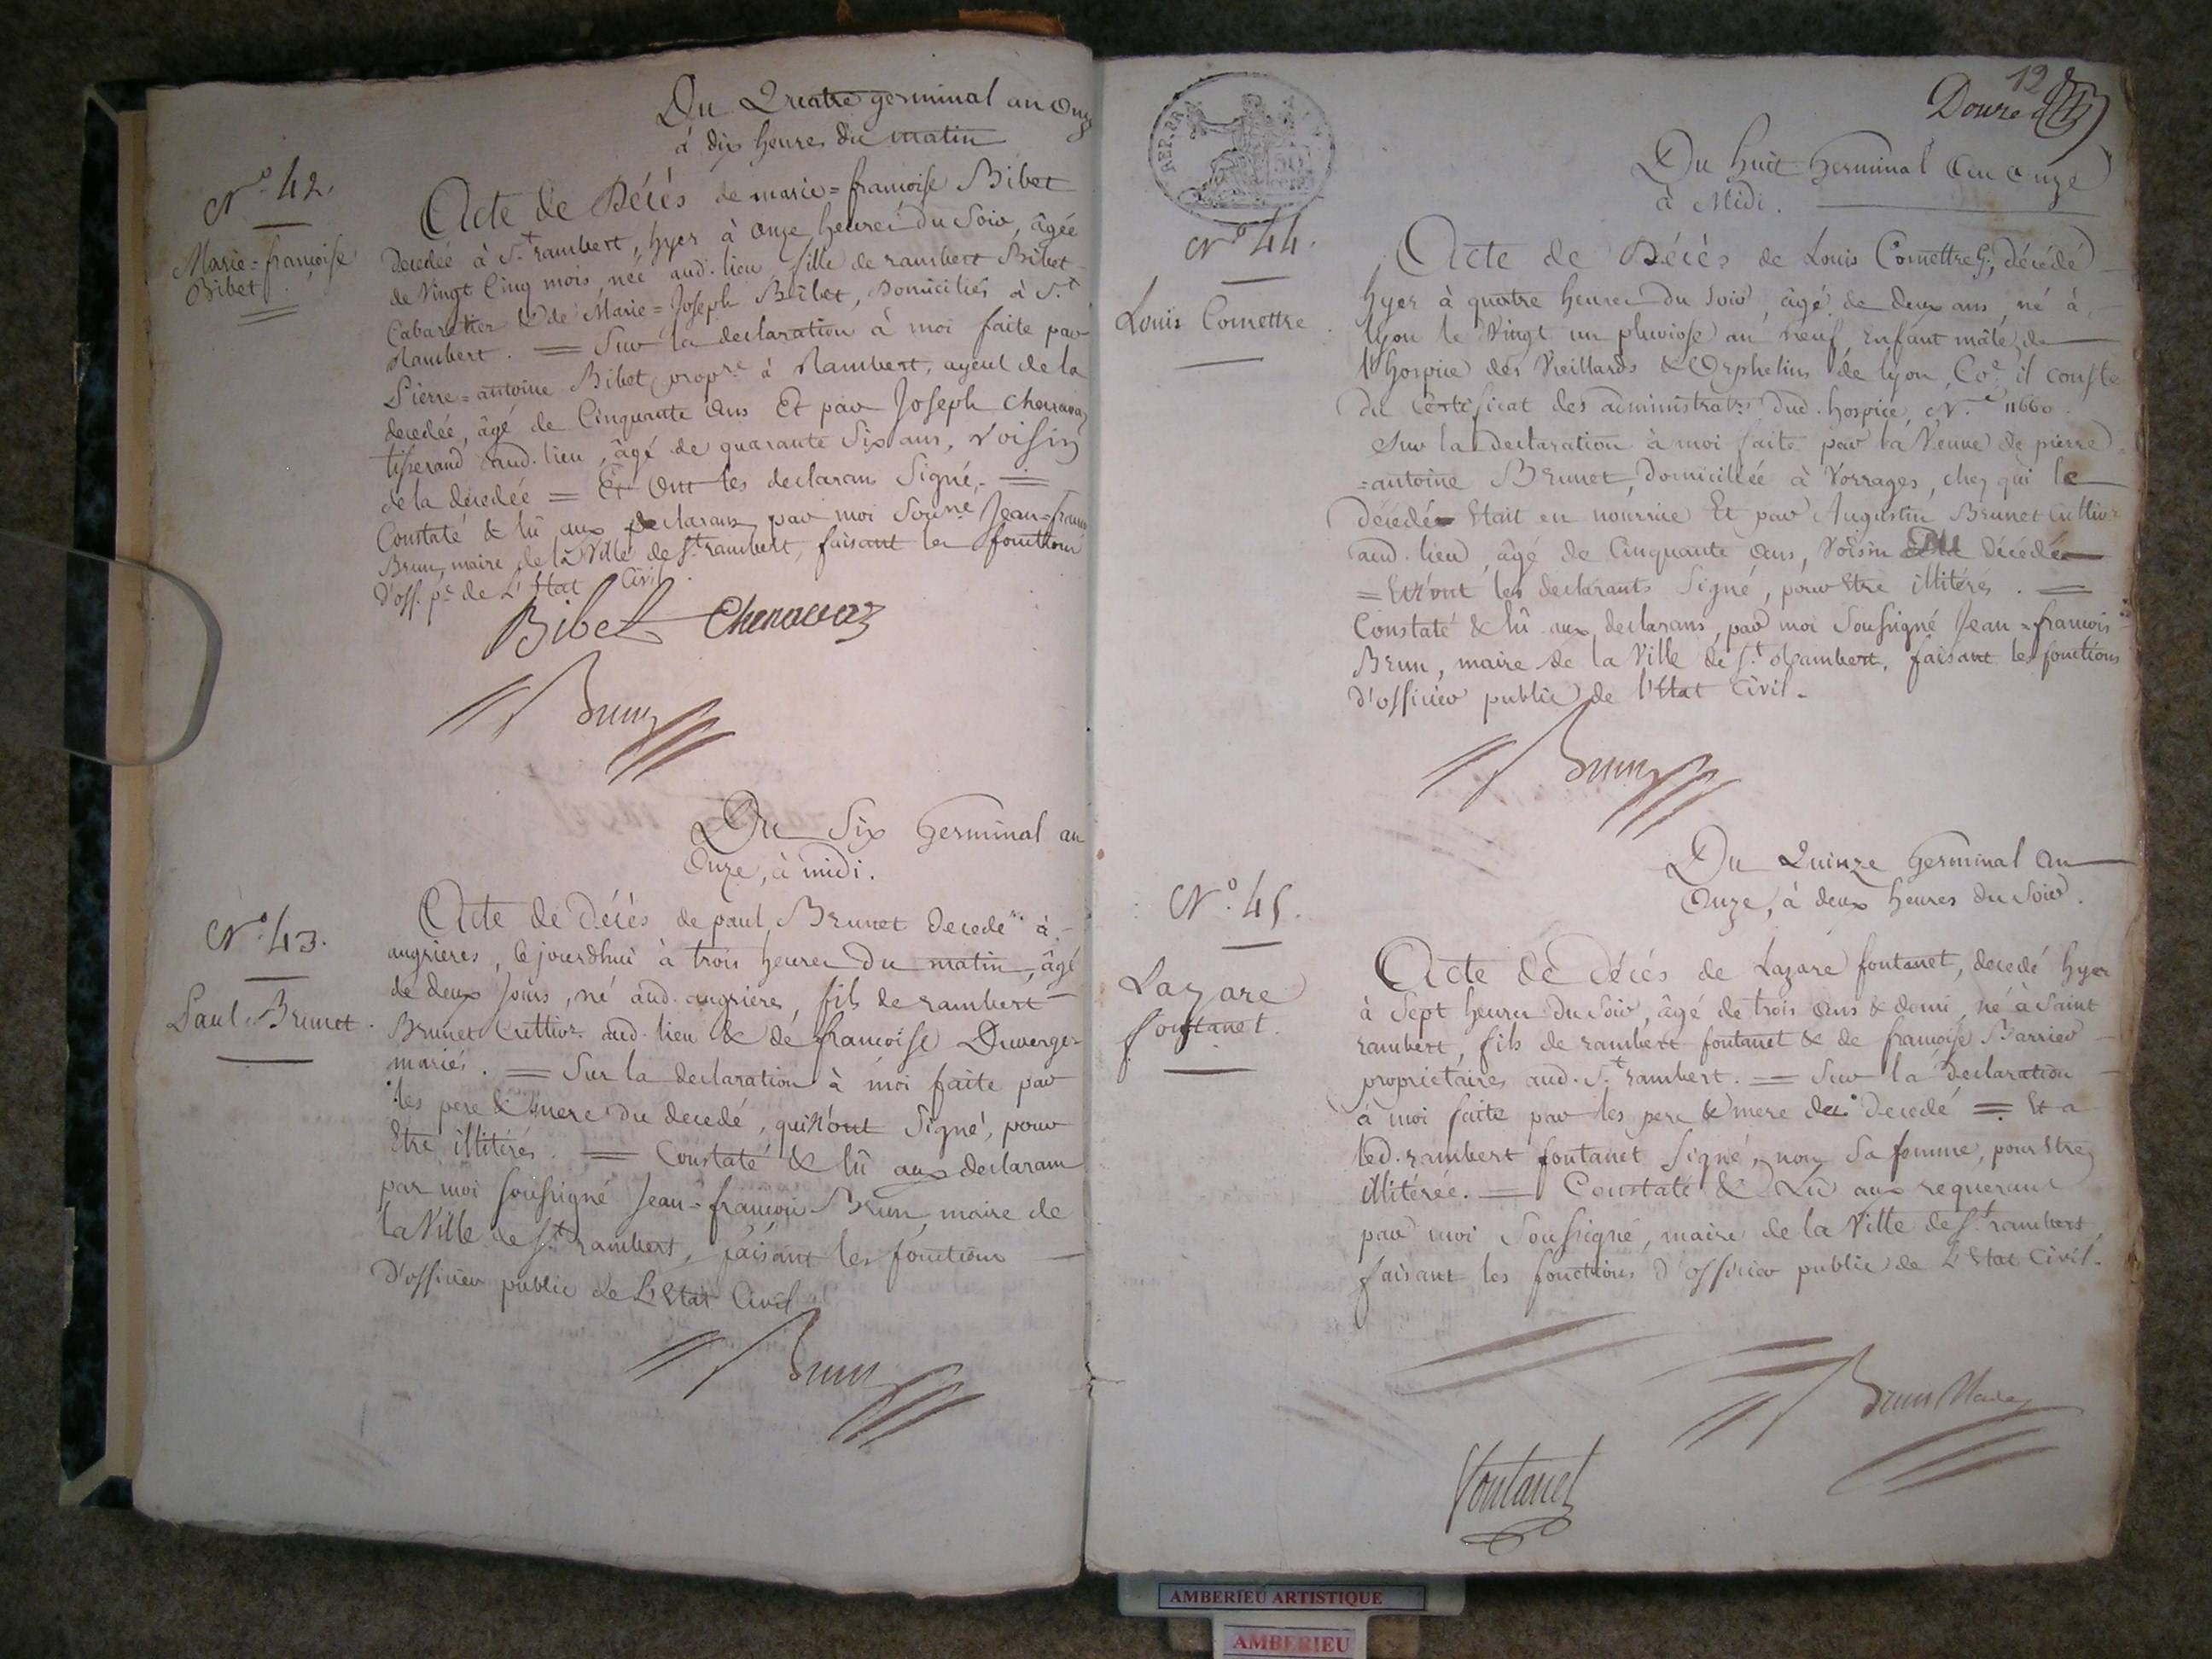 Du Quatre germinal an Onze
à dix heures du matin
N.o 42.
Marie=françoise
Bibet.
Acte de Décés de marie=francoise Bibet
Decedée à S.t rambert, hyer à onze heures du Soir, âgée
de Vingt Cinq mois, née aud. lieu, fille de rambert Bibet
Cabaretier & de Marie=Joseph Bibet, Domiciliés à S.t
Rambert. = Sur la declaration à moi faite par
Pierre=antoine Bibet, prop.re à Rambert, ayeul de la
decedée, âgé de Cinquante Ans Et par Joseph Chenavaz
tisserand aud. lieu, âgé de quarante Six ans, Voisin
de la decedée = Et Ont les declarans Signé. =
Constaté & lû aux declarans par moi Sous.né Jean=franc.
Brun, maire de la Ville de S.t rambert, faisant les fonctions
d'off. p.c de L'Etat Civil.
Bibet Chenavaz
Brun
Du Six Germinal an
Onze, à midi.
N.o 43.
Paul Brunet.
Acte de Décés de paul Brunet Decedé à
angrieres, Cejourdhui à trois heures Du matin, âgé
de deux Jours, né aud. angrieres, fils de rambert
Brunet Cultiv.r aud. lieu & de francoise Duverger
mariés. = Sur la declaration à moi faite par
les pere & mere du decedé, qui n'ont Signé, pour
Etre illitérés. = Constaté & lû aux declarans
par moi Soussigné Jean=françois Brun, maire de
la Ville de S.t rambert, faisant les fonctions
D'officier public de L'Etat Civil
Brun
REP. FRA
50
12
Douze
Du huit Germinal an onze
à Midi.
N.o 44.
Louis Comettre.
Acte de Décés de Louis Comettre, décédé
hyer à quatre heures Du Soir, âgé de deux ans, né à
lyon le Vingt un pluviose an neuf, Enfant mâle de
l'hospice des Vieillards & Orphelins de lyon, Co.e il conste
du Certificat des administrat.rs dud. hospice, N.o 11660.
Sur la declaration à moi faite par la Veuve de pierre
=antoine Brunet, domiciliée à Vorrages, chez qui le
décedé Etait en nourrice Et par Augustin Brunet Cultiv.r
aud. lieu, âgé de Cinquante Ans, Voisin Du décédé
= Et n'ont les declarants Signé, pour Etre illitérés. =
Constaté & lû aux declarans, par moi Soussigné Jean=francois
Brun, maire de la Ville de S.t Rambert, faisant les fonctions
d'officier public de l'Etat Civil.
Brun
Du Quinze Germinal an
Onze, à deux heures du Soir.
N.o 45.
Lazare
fontanet.
Acte de Décés de Lazare fontanet, decedé hyer
à Sept heures du Soir, âgé de trois Ans & demi, né à Saint
rambert, fils de rambert fontanet & de françoise Barrier
proprietaires aud. S.t rambert. = Sur la Declaration
à moi faite par les pere & mere du Decedé = Et a
led. rambert fontanet Signé, non Sa femme, pour Etre
illitérée. = Constaté & Lû aux requerans
par moi Soussigné, maire de la Ville de S.t rambert,
faisant les fonctions d'officier public de L'Etat Civil.
Brun Maire
Fontanet
AMBERIEU ARTISTIQUE
AMBERIEU